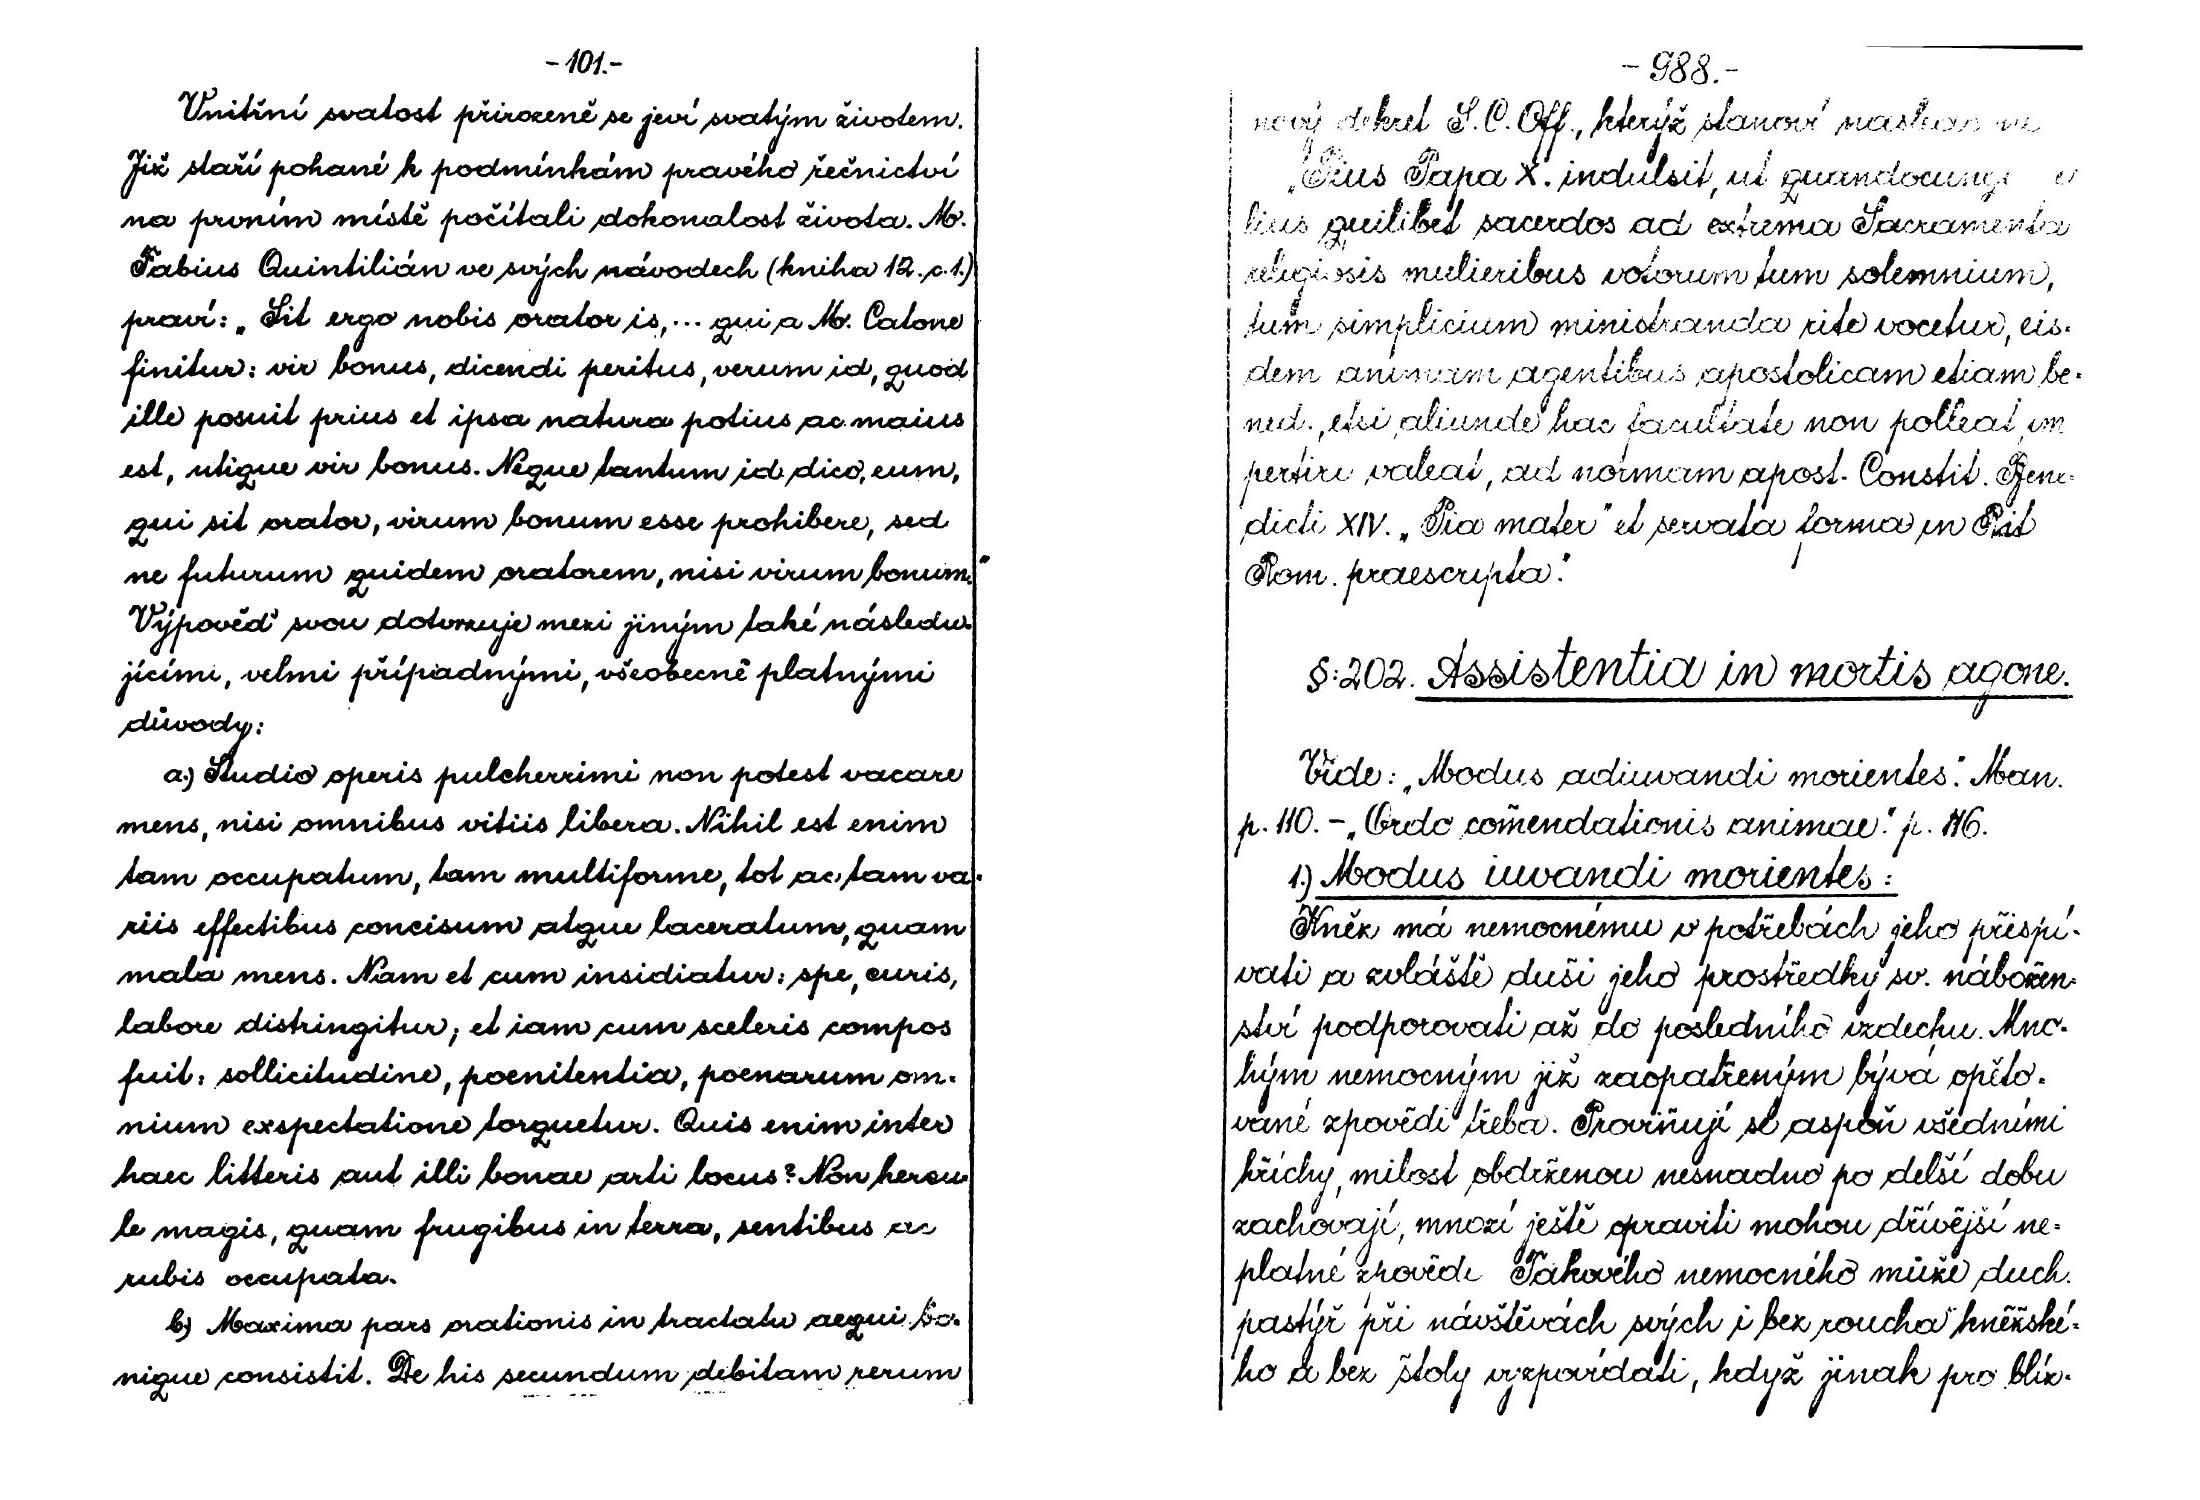 -101.-
Vnitřní svatost přirozeně se jeví svatým životem.
Již staří pohané k podmínkám pravého řečnictví
na prvním místě počítali dokonalost života. M.
Fabius Quintilián ve svých návodech (kniha 12. c. 1.)
praví: „Sit ergo nobis orator is,... qui a M. Catone
finitur: vir bonus, dicendi peritus, verum id, quod
ille posuit prius et ipsa natura potius ac maius
est, utique vir bonus. Neque tantum id dico, eum,
qui sit orator, virum bonum esse prohibere, sed
ne futurum quidem oratorem, nisi virum bonum."
Výpověď svou dotvrzuje mezi jiným také následu-
jícími, velmi případnými, všeobecně platnými
důvody:
a.) Studio operis pulcherrimi non potest vacare
mens, nisi omnibus vitiis libera. Nihil est enim
tam occupatum, tam multiforme, tot ac tam va-
riis effectibus concisum atque laceratum, quam
mala mens. Nam et cum insidiatur: spe, curis,
labore distringitur; et iam cum sceleris compos
fuit: sollicitudine, poenitentia, poenarum om-
nium exspectatione torquetur. Quis enim inter
haec litteris aut illi bonae arti locus? Non hercu-
le magis, quam frugibus in terra, sentibus ac
rubis occupata.
b) Maxima pars orationis in tractatu aequi bo-
nique consistit. De his secundum debitam rerum
-988.-
nový dekret S. C. Off., kterýž stanoví
„Pius Papa X. indulsit, ut
quilibet sacerdos ad extrema Sacramenta
religiosis mulieribus votorum tum solemnium,
tum simplicium ministranda rite vocetur, eis-
dem animam agentibus apostolicam etiam be-
ned., etsi aliunde hac facultate non polleat, im
pertire valeat, ad normam apost. Constit. Bene-
dicti XIV. „Pia mater" et servata forma in Rit
Rom. praescripta."
§: 202. Assistentia in mortis agone.
Vide: „Modus adiuvandi morientes". Man.
p. 110. - „Ordo com̃endationis animae." p. 116.
1.) Modus iuvandi morientes:
Kněz má nemocnému v potřebách jeho přispí-
vati a zvláště duši jeho prostředky sv. nábožen-
ství podporovati až do posledního vzdechu. Mno-
hým nemocným již zaopatřeným bývá opěto-
vané zpovědi třeba. Proviňují se aspoň všedními
hříchy, milost obdrženou nesnadno po delší dobu
zachovají, mnozí ještě opraviti mohou dřívější ne-
platné zpovědi Takového nemocného může duch.
pastýř při návštěvách svých i bez roucha kněžské-
ho a bez štoly vyzpovídati, když jinak pro blíz-